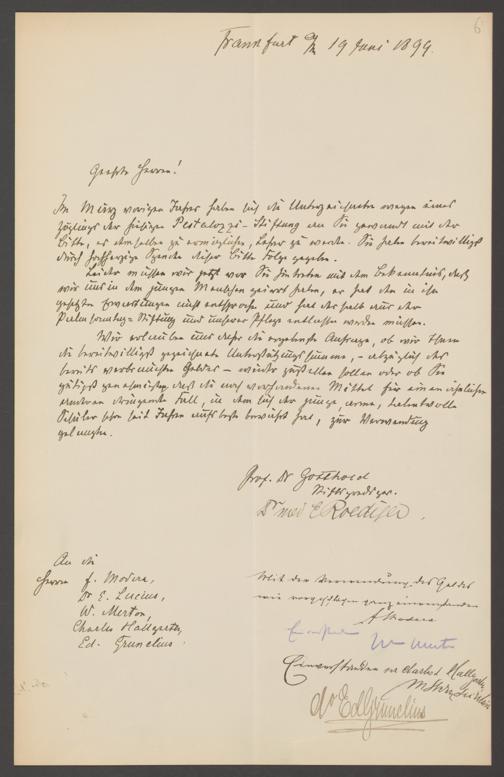 6
Frankfurt a/M 19 Juni 1899.
Geehrte Herren!
Im März vorigen Jahres haben sich die Unterzeichneten wegen eines
Zöglings der hiesigen Pestalozzi-Stiftung an Sie gewandt mit der
Bitte, es demselben zu ermöglichen, Lehrer zu werden. Sie haben bereitwilligst
durch hochherzige Spende dieser Bitte Folge gegeben.
Leider müssen wir jetzt vor Sie hintreten mit dem Bekenntnis, daß
wir uns in dem jungen Menschen geirrt haben, er hat den in ihn
gesetzten Erwartungen nicht entsprochen und hat deshalb aus der
Stiftung und unserer Pflege entlassen werden müssen.
Wir erlauben uns daher die ergebenste Anfrage, ob wir Ihnen
die bereitwilligst gezeichnete Unterstützungssumme, - abzüglich des
bereits verbrauchten Geldes - wieder zustellen sollen oder ob Sie
gütigst genehmigen, daß die noch vorhandenen Mittel für einen ähnlichen
anderen dringenden Fall, in dem sich der junge, arme, talentvolle
Schüler schon seit Jahren aufs beste bewährt hat, zur Verwendung
gelangen.
Prof. Dr
Dr med E Roediger.
An die
Herren f. Modera,
Dr E. Lucius,
W. Merton,
Charles Hallgarten,
Ed. Grunelius.
Mit der Verwendung des Geldes
wie vorgeschlagen ganz einverstanden
Modera
W Merton
Einverstanden Charles Hallgarten
do Ed Grunelius